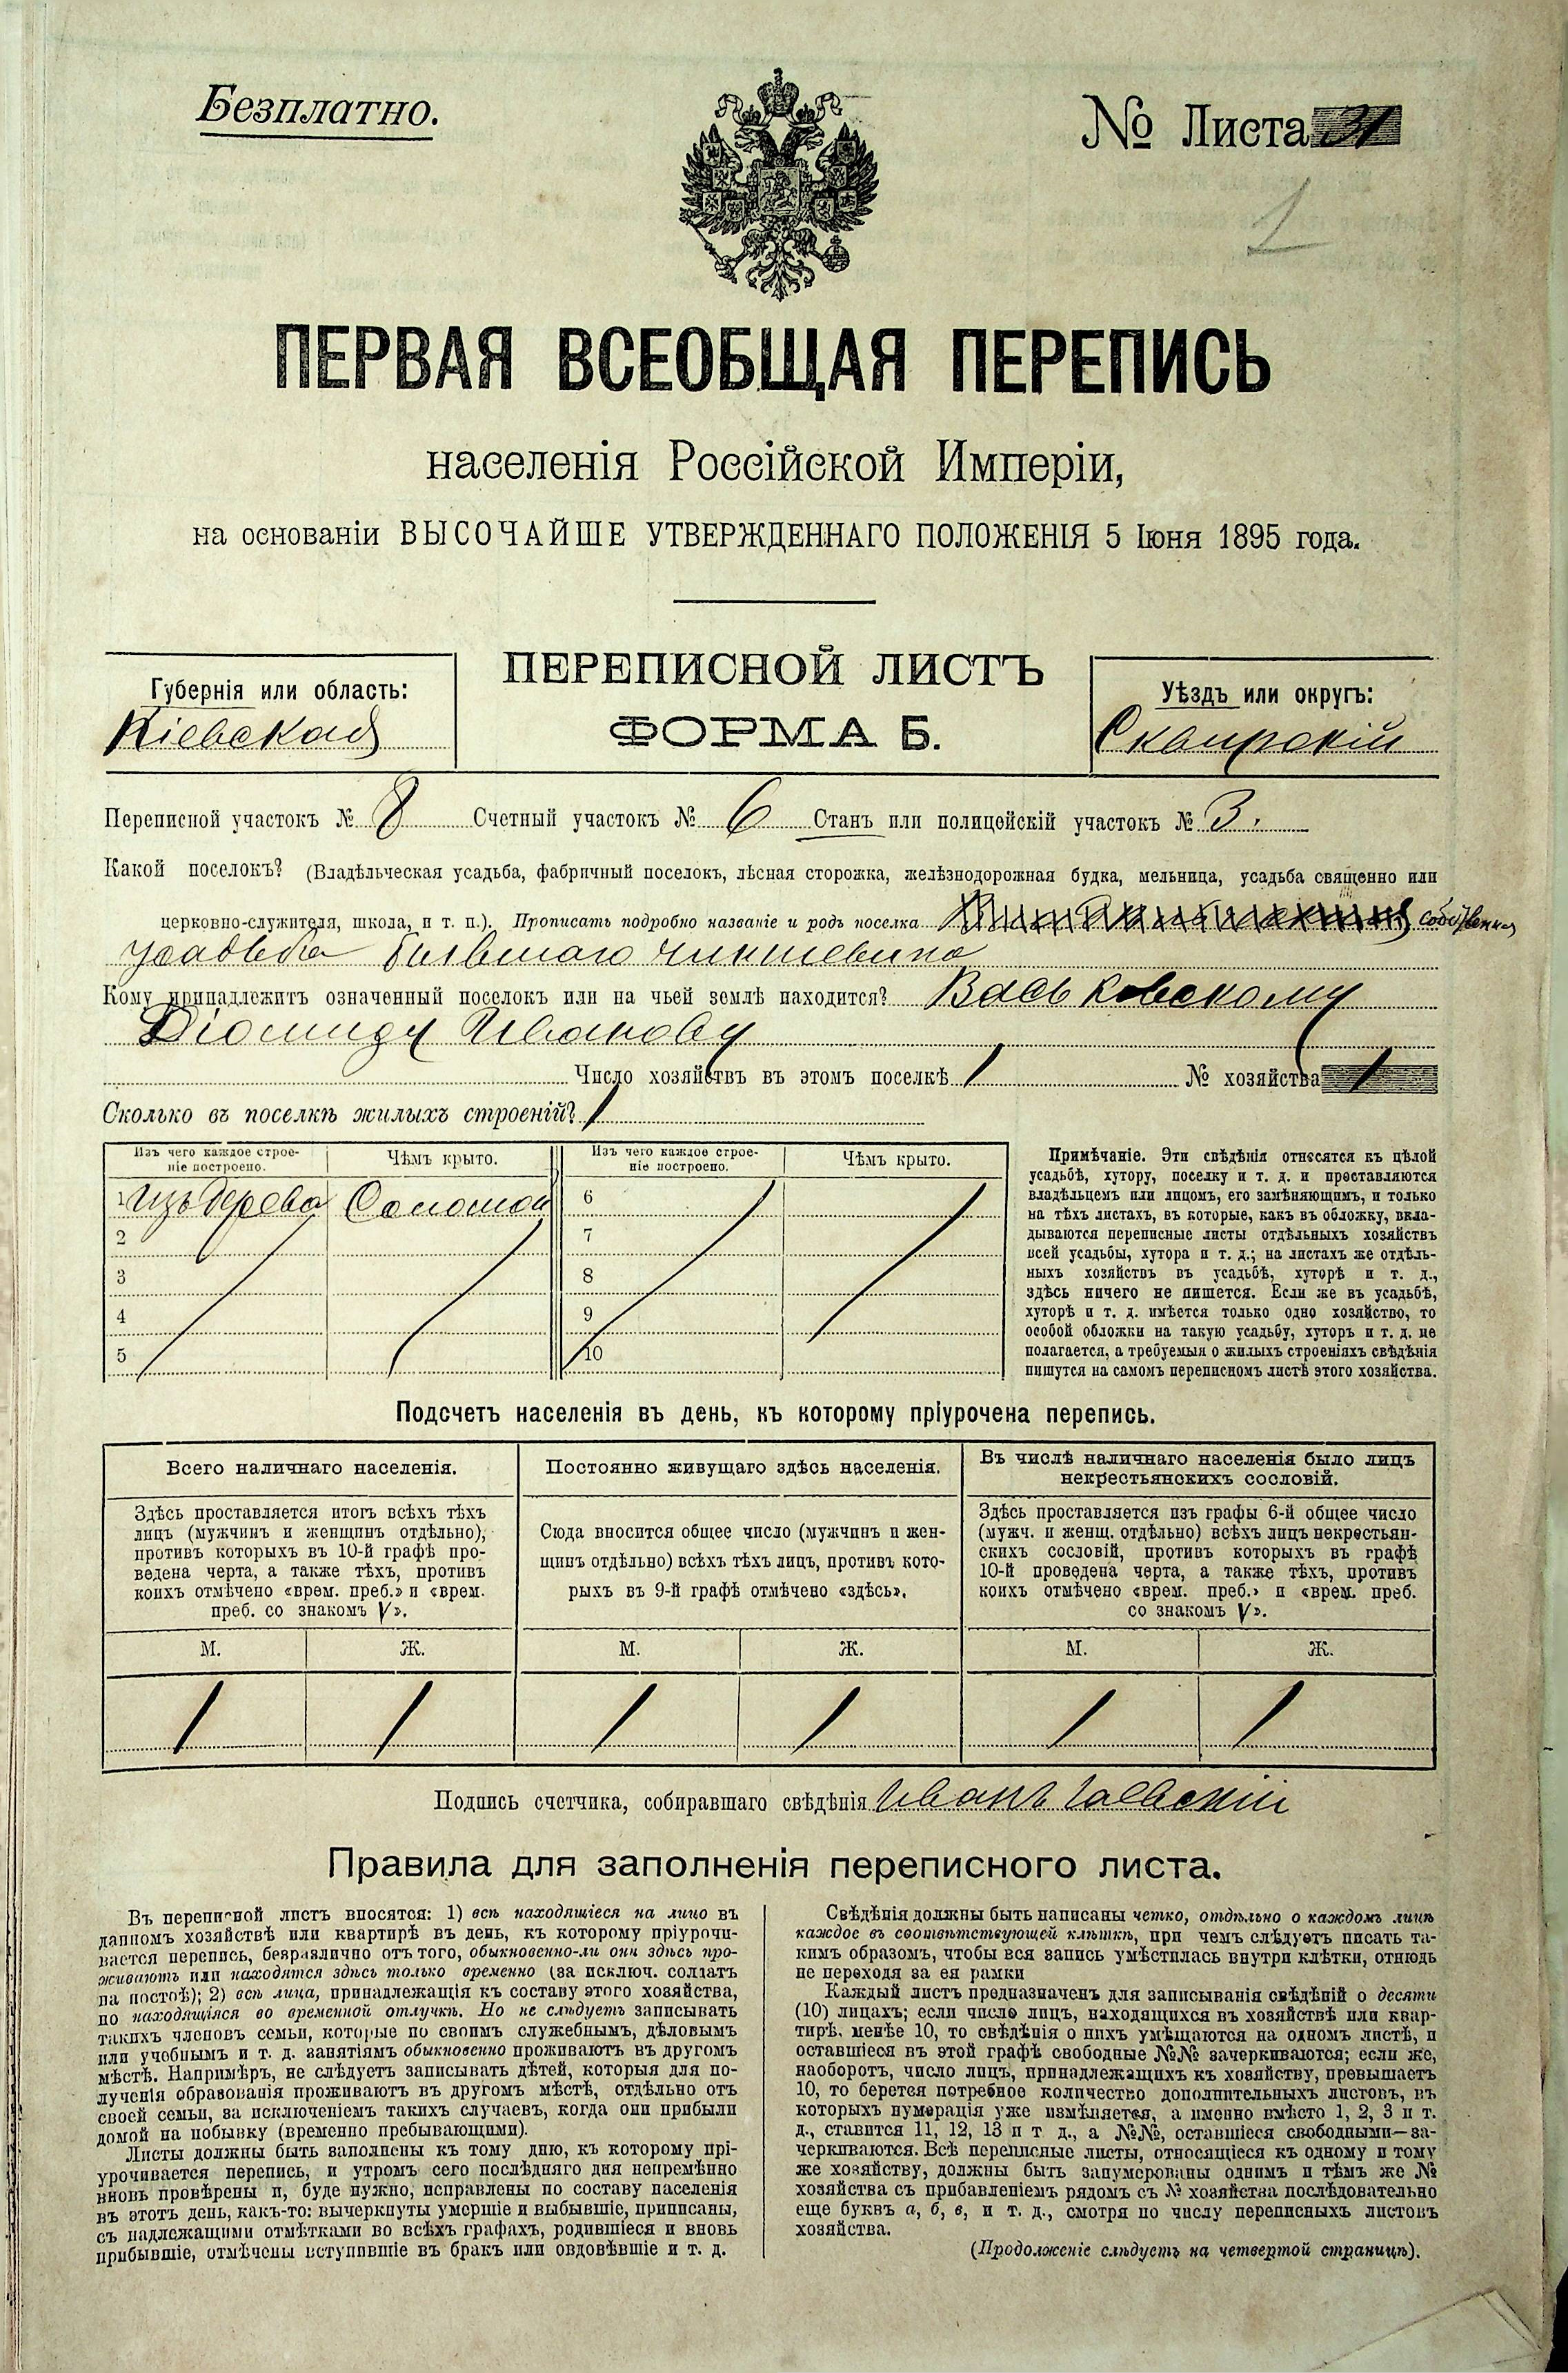 Безплатно.
№ Листа 31
1
ПЕРВАЯ ВСЕОБЩАЯ ПЕРЕПИСЬ
населенія Россійской Имперіи,
на основаніи ВЫСОЧАЙШЕ УТВЕРЖДЕННАГО ПОЛОЖЕНІЯ 5 Іюня 1895 года.
ПЕРЕПИСНОЙ ЛИСТЪ
ФОРМА Б.
Губернія или область:
Кіевская
Уѣздъ или округъ:
Сквирскій
Переписной участокъ № 8 Счетный участокъ № 6 Станъ или полицейскій участокъ № 3.
Какой поселокъ? (Владѣльческая усадьба, фабричный поселокъ, лѣсная сторожка, желѣзнодорожная будка, мельница, усадьба священно или
церковно-служителя, школа, и т. п.). Прописать подробно названіе и родъ поселка собственная
усадьба бывшаго чиншевика
Кому принадлежитъ означенный поселокъ или на чьей землѣ находится? Васьковскому
Діомиду Иванову
Число хозяйствъ въ этомъ поселкѣ 1 № хозяйства 1
Сколько въ поселкѣ жилыхъ строеній? 1
Изъ чего каждое строе-
ніе построено.
Чѣмъ крыто.
Изъ чего каждое строе-
ніе построено.
Чѣмъ крыто.
1 Изъ дерева Соломой 6
2 7
3 8
4 9
5 10
Примѣчаніе. Эти свѣдѣнія относятся къ цѣлой
усадьбѣ, хутору, поселку и т. д. и проставляются
владѣльцемъ или лицомъ, его замѣняющимъ, и только
на тѣхъ листахъ, въ которые, какъ въ обложку, вкла-
дываются переписные листы отдѣльныхъ хозяйствъ
всей усадьбы, хутора и т. д.; на листахъ же отдѣль-
ныхъ хозяйствъ въ усадьбѣ, хуторѣ и т. д.,
здѣсь ничего не пишется. Если же въ усадьбѣ,
хуторѣ и т. д. имѣется только одно хозяйство, то
особой обложки на такую усадьбу, хуторъ и т. д. не
полагается, а требуемыя о жилыхъ строеніяхъ свѣдѣнія
пишутся на самомъ переписномъ листѣ этого хозяйства.
Подсчетъ населенія въ день, къ которому пріурочена перепись.
Всего наличнаго населенія.
Здѣсь проставляется итогъ всѣхъ тѣхъ
лицъ (мужчинъ и женщинъ отдѣльно),
противъ которыхъ въ 10-й графѣ про-
ведена черта, а также тѣхъ, противъ
коихъ отмѣчено «врем. преб.» и «врем.
преб. со знакомъ V».
М. Ж.
1 1
Постоянно живущаго здѣсь населенія.
Сюда вносится общее число (мужчинъ и жен-
щинъ отдѣльно) всѣхъ тѣхъ лицъ, противъ кото-
рыхъ въ 9-й графѣ отмѣчено «здѣсь».
М. Ж.
1 1
Въ числѣ наличнаго населенія было лицъ
некрестьянскихъ сословій.
Здѣсь проставляется изъ графы 6-й общее число
(мужч. и женщ. отдѣльно) всѣхъ лицъ некрестьян-
скихъ сословій, противъ которыхъ въ графѣ
10-й проведена черта, а также тѣхъ, противъ
коихъ отмѣчено «врем. преб.» и «врем. преб.
со знакомъ V».
М. Ж.
1 1
Подпись счетчика, собиравшаго свѣдѣнія Иванъ
Правила для заполненія переписного листа.
Въ переписной листъ вносятся: 1) всѣ находящіеся на лицо въ
данномъ хозяйствѣ или квартирѣ въ день, къ которому пріурочи-
вается перепись, безразлично отъ того, обыкновенно-ли они здѣсь про-
живаютъ или находятся здѣсь только временно (за исключ. солдатъ
на постоѣ); 2) всѣ лица, принадлежащія къ составу этого хозяйства,
но находящіяся во временной отлучкѣ. Но не слѣдуетъ записывать
такихъ членовъ семьи, которые по своимъ служебнымъ, дѣловымъ
или учебнымъ и т. д. занятіямъ обыкновенно проживаютъ въ другомъ
мѣстѣ. Напримѣръ, не слѣдуетъ записывать дѣтей, которыя для по-
лученія образованія проживаютъ въ другомъ мѣстѣ, отдѣльно отъ
своей семьи, за исключеніемъ такихъ случаевъ, когда они прибыли
домой на побывку (временно пребывающими).
Листы должны быть заполнены къ тому дню, къ которому прі-
урочивается перепись, и утромъ сего послѣдняго дня непремѣнно
вновь провѣрены и, буде нужно, исправлены по составу населенія
въ этотъ день, какъ-то: вычеркнуты умершіе и выбывшіе, приписаны,
съ надлежащими отмѣтками во всѣхъ графахъ, родившіеся и вновь
прибывшіе, отмѣчены вступившіе въ бракъ или овдовѣвшіе и т. д.
Свѣдѣнія должны быть написаны четко, отдѣльно о каждомъ лицѣ
каждое въ соотвѣтствующей клѣткѣ, при чемъ слѣдуетъ писать та-
кимъ образомъ, чтобы вся запись умѣстилась внутри клѣтки, отнюдь
не переходя за ея рамки
Каждый листъ предназначенъ для записыванія свѣдѣній о десяти
(10) лицахъ; если число лицъ, находящихся въ хозяйствѣ или квар-
тирѣ, менѣе 10, то свѣдѣнія о нихъ умѣщаются на одномъ листѣ, и
оставшіеся въ этой графѣ свободные №№ зачеркиваются; если же,
наоборотъ, число лицъ, принадлежащихъ къ хозяйству, превышаетъ
10, то берется потребное количество дополнительныхъ листовъ, въ
которыхъ нумерація уже измѣняется, а именно вмѣсто 1, 2, 3 и т.
д., ставится 11, 12, 13 и т д., а №№, оставшіеся свободными—за-
черкиваются. Всѣ переписные листы, относящіеся къ одному и тому
же хозяйству, должны быть занумерованы однимъ и тѣмъ же №
хозяйства съ прибавленіемъ рядомъ съ № хозяйства послѣдовательно
еще буквъ а, б, в, и т. д., смотря по числу переписныхъ листовъ
хозяйства.
(Продолженіе слѣдуетъ на четвертой страницѣ).